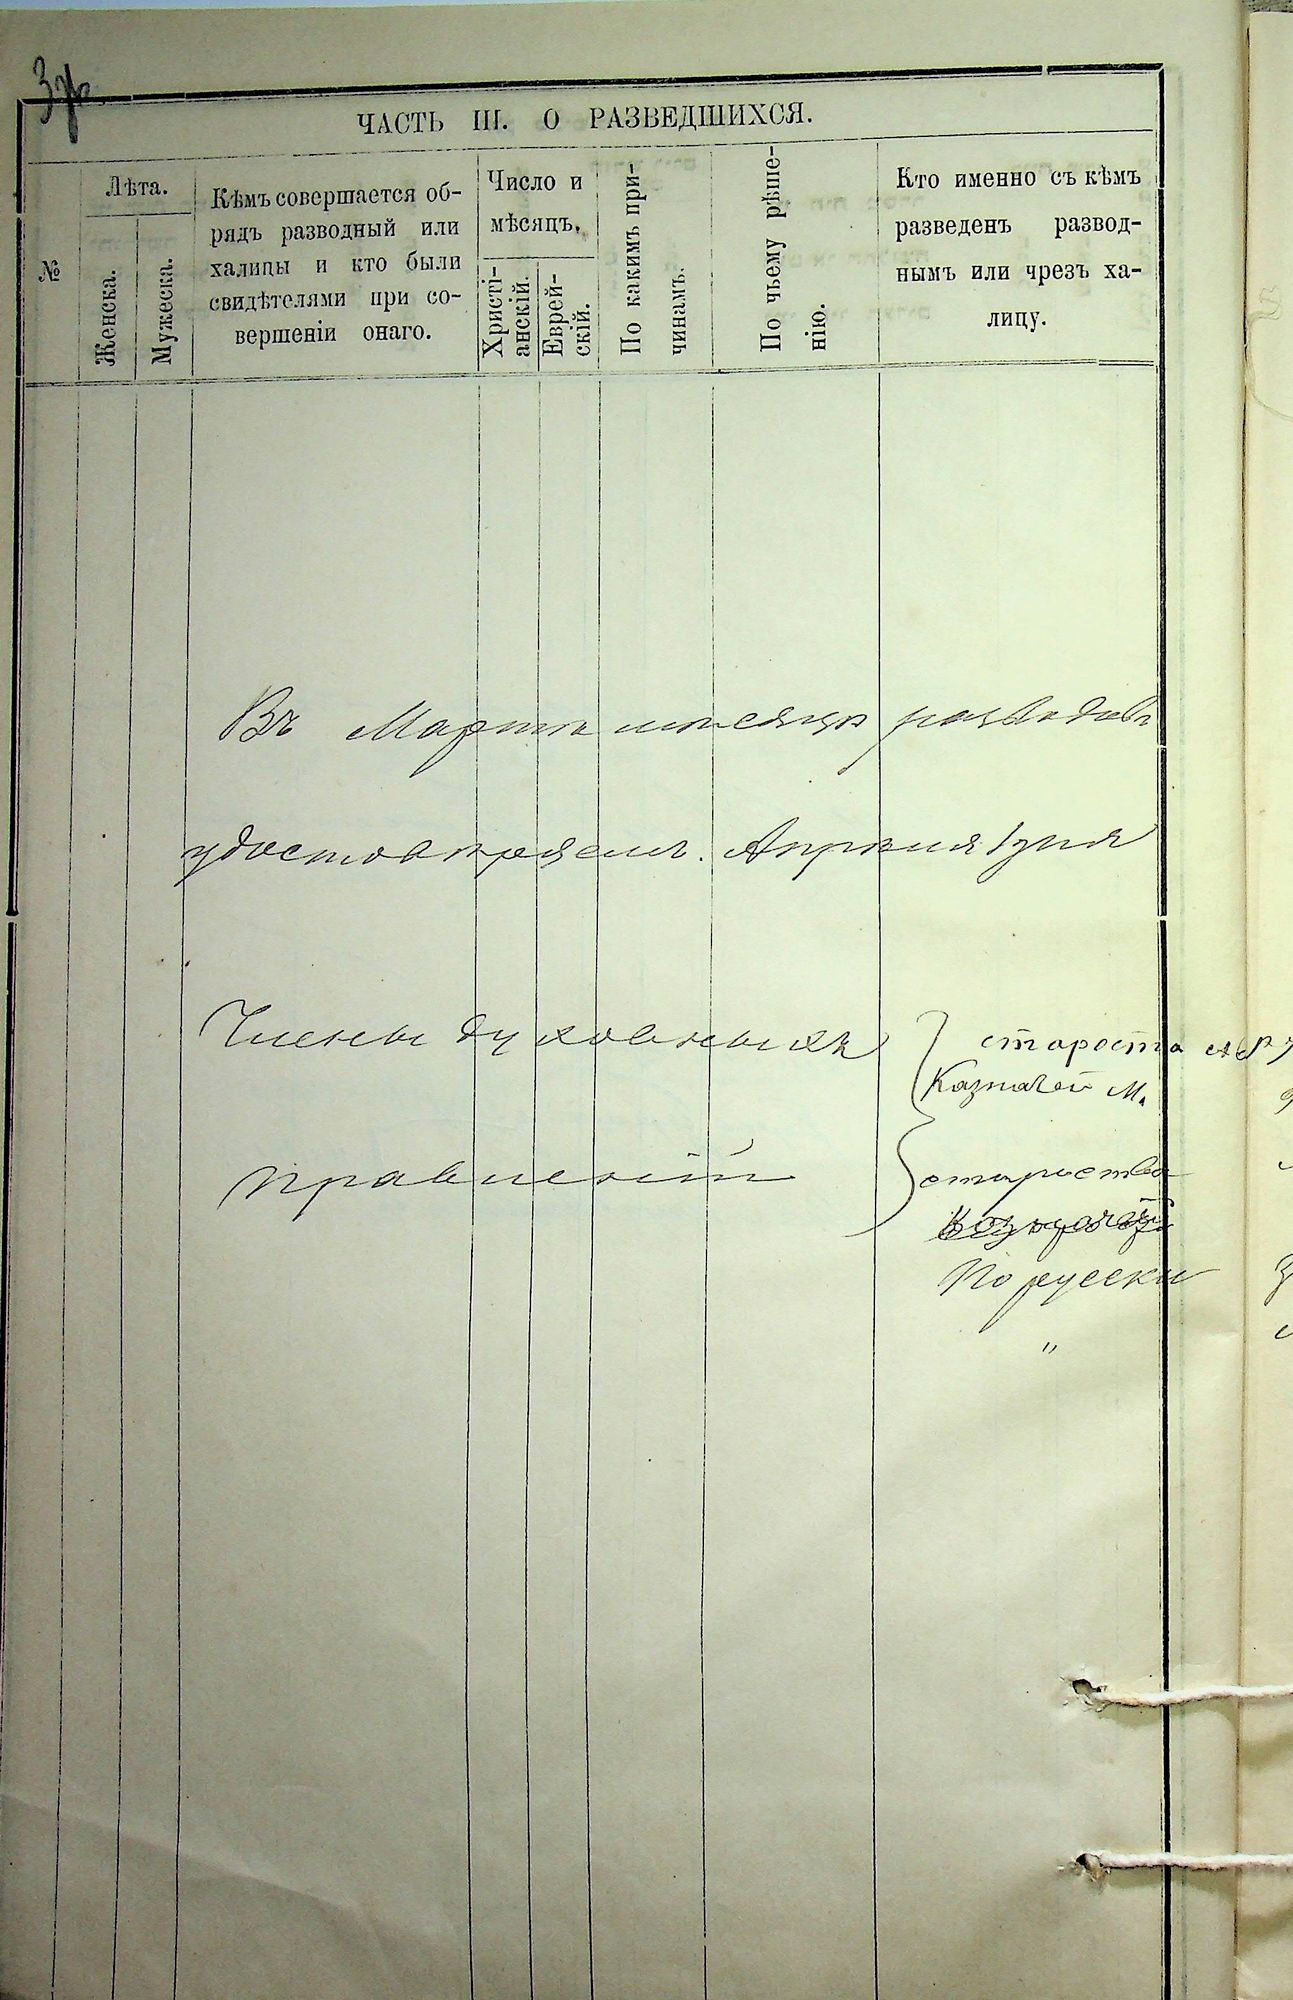 ЧАСТЬ III. О РАЗВЕДШИХСЯ.
№
Лѣта.
Женска.
Мужеска.
Кѣмъ совершается об-
рядъ разводный или
халицы и кто были
свидѣтелями при со-
вершеніи онаго.
Число и
мѣсяцъ.
Христі-
анскій.
Еврей-
скій.
По какимъ при-
чинамъ.
По чьему рѣше-
нію.
Кто именно съ кѣмъ
разведенъ развод-
нымъ или чрезъ ха-
лицу.
Въ Мартѣ мѣсяцѣ разводовъ
удостовѣряемъ. Апрѣля 1 дня
Члены духовныхъ
правленій
староста
Казначей М.
староства
По русски
"